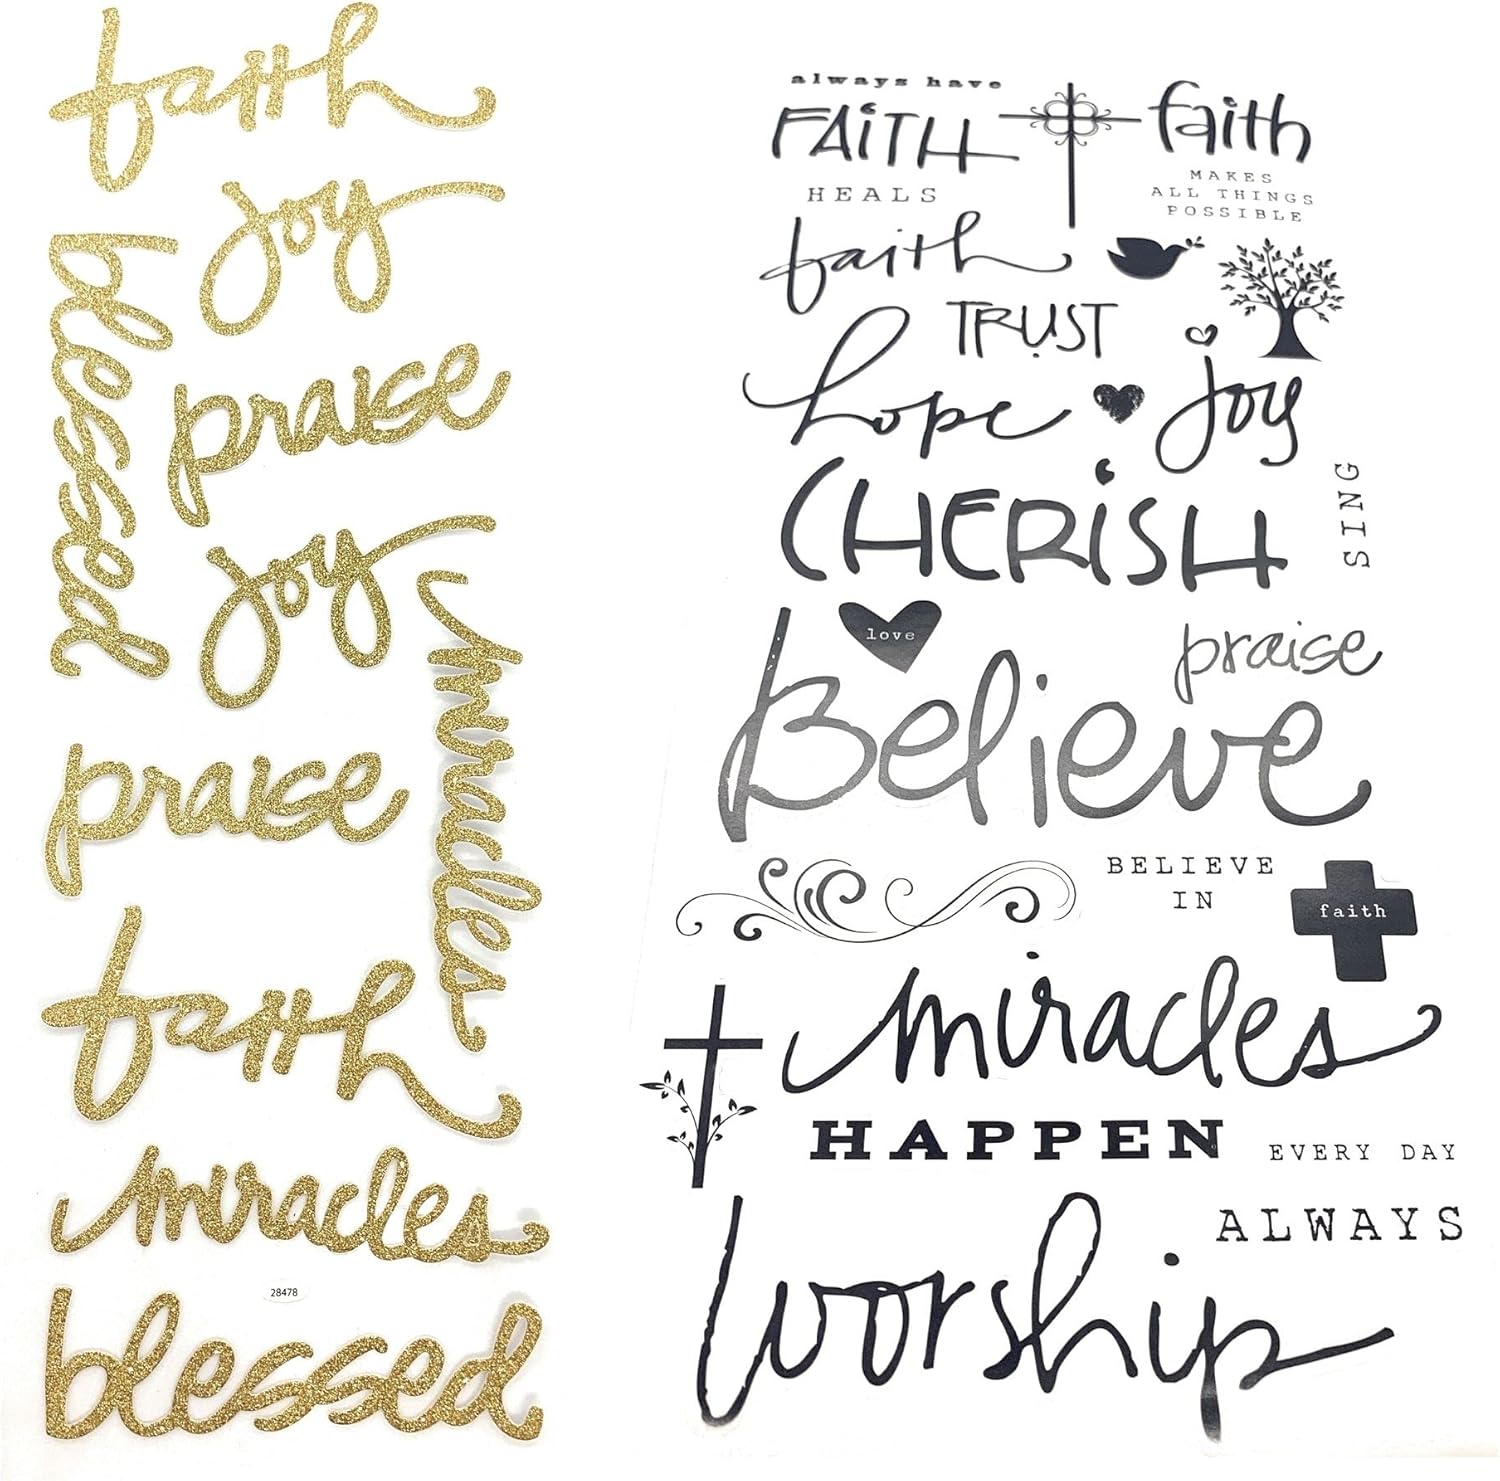 faith
joy
blessed
praise
joy
miracles
praise
faith
miracles
28478
blessed
always have
FAiTH
HEALS
faith
MAKES
ALL THINGS
POSSIBLE
faith
TRUST
hope
joy
CHERiSH
SING
love
praise
Believe
BELIEVE
IN
faith
miracles
HAPPEN
EVERY DAY
ALWAYS
worship